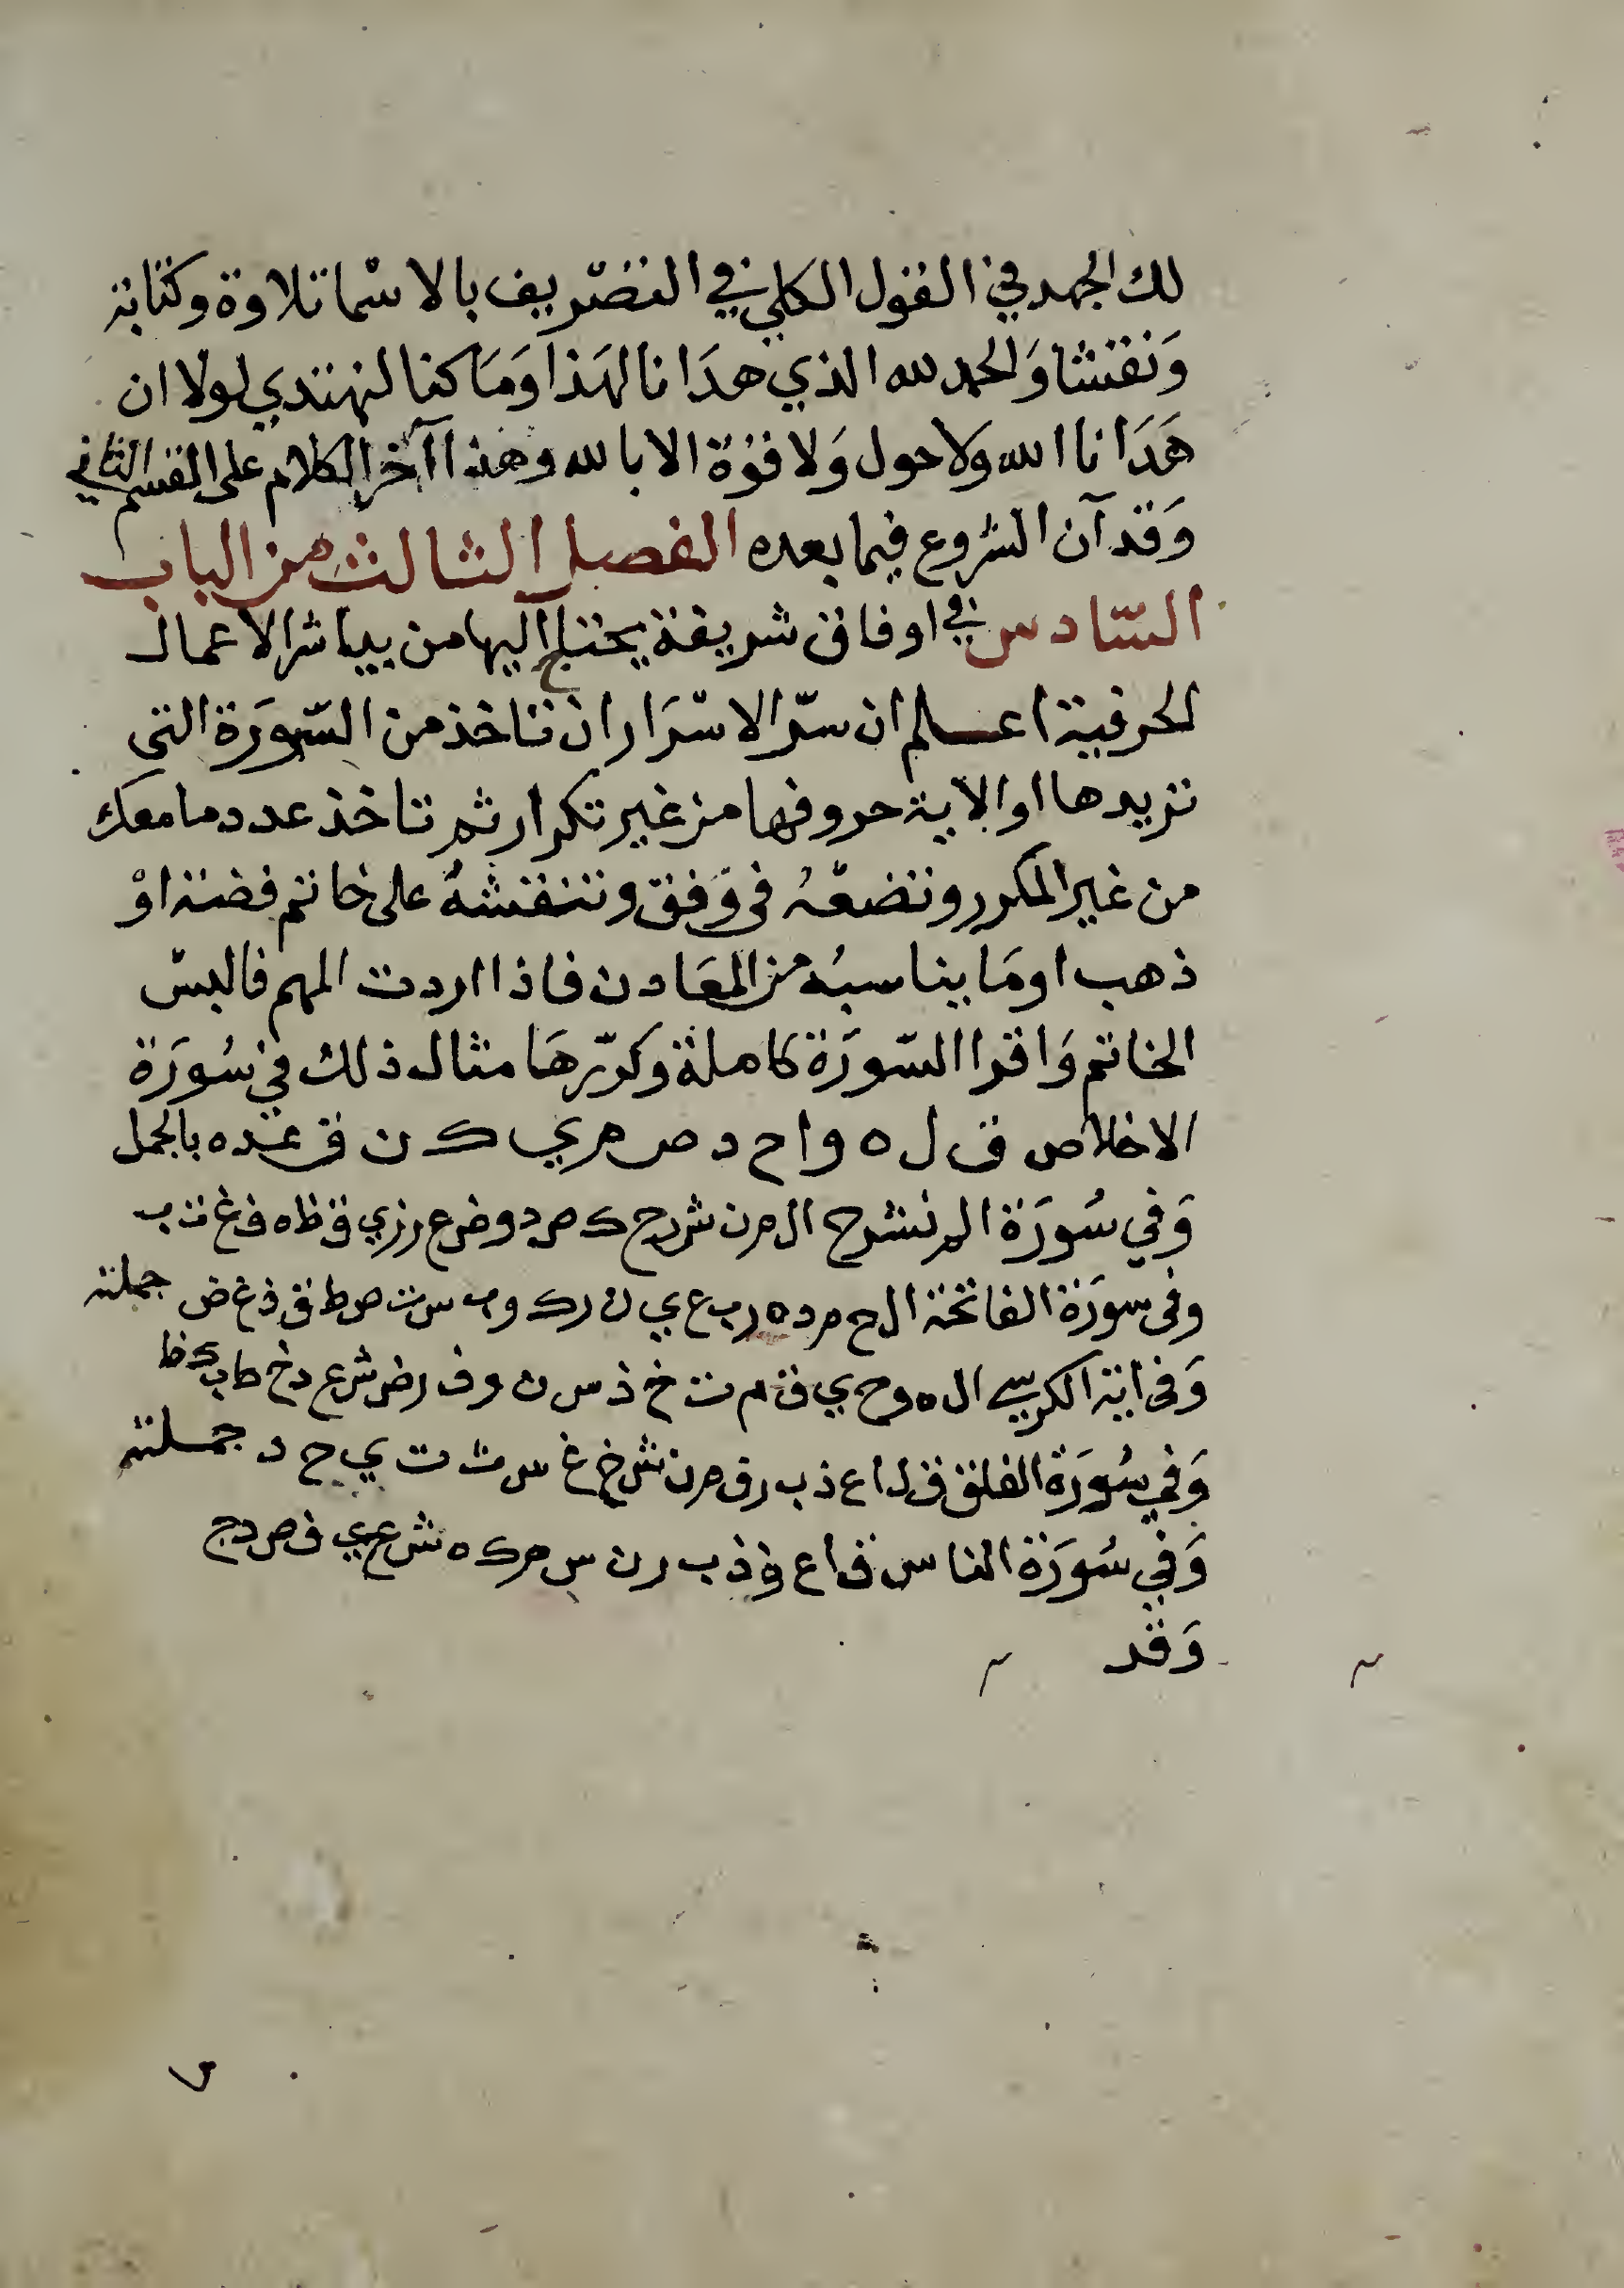 لك الجهد في القول الكلي في التصريف بالاسما تلاوة وكتابة
وَنقشا وَالحمد لله الذي هدَانا لهَذا وَمَا كنا لنهتدي لولا ان
هَدَانا الله وَلا حول وَلا قوة الا بالله وهذا آخر الكلام على القسم الثاني
وَقد آن الشروع فيما بعده الفصل الثالث من الباب
السّادس في اوفاق شريفة يحتاج اليها من يباشر الاعمال
الحرفية اعلم ان سرّ الاسْرَار ان تاخذ من السّورَة التي
تريدها او الاية حروفها من غير تكرار ثم تاخذ عدد ما معك
من غير المكرر وتضعْهُ في وَفق وتنقشهُ على خاتم فضة اوْ
ذهب او مَا يناسبُه من المعَادن فاذا اردت المهم فالبسْ
الخاتم وَاقرا السّورَة كاملة وكرّرهَا مثال ذلك في سُورَة
الاخلاص ق ل ه و ا ح د ص م ي ك ن ف عدّه بالجمل
وَفي سُورَة الم نشرح ا ل م ن ش ر ح ك ص د و ض ع ز ي ق ظ ه ف غ ت ب
وفي سورَة الفاتحة ا ل ح م د ه ر ب ع ي ن ك و س ت ص ط ق ذ غ ض جملته
وَفي اية الكرسي ا ل ه و ح ي ق م ت خ ذ س ن و ف ر ض ش ع د خ ط ب ك ظ
وَفي سُورَة الفلق ق ل ا ع ذ ب ر ف م ن ش خ غ س ث ت ي ح د جملته
وَفي سُورَة الناس ق ا ع و ذ ب ر ن س م ك ه ش ع ي ف ص د ج
وَقد